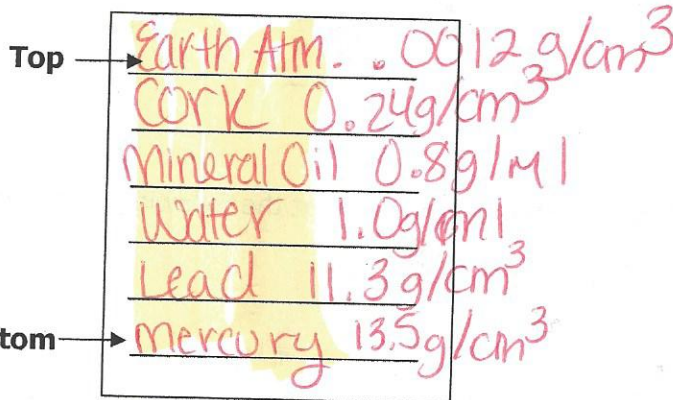 Top Earth Atm. .0012 g/cm³
Cork 0.24g/cm³
Mineral Oil 0.8g/Ml
Water 1.0g/ml
Lead 11.3g/cm³
tom mercury 13.5g/cm³